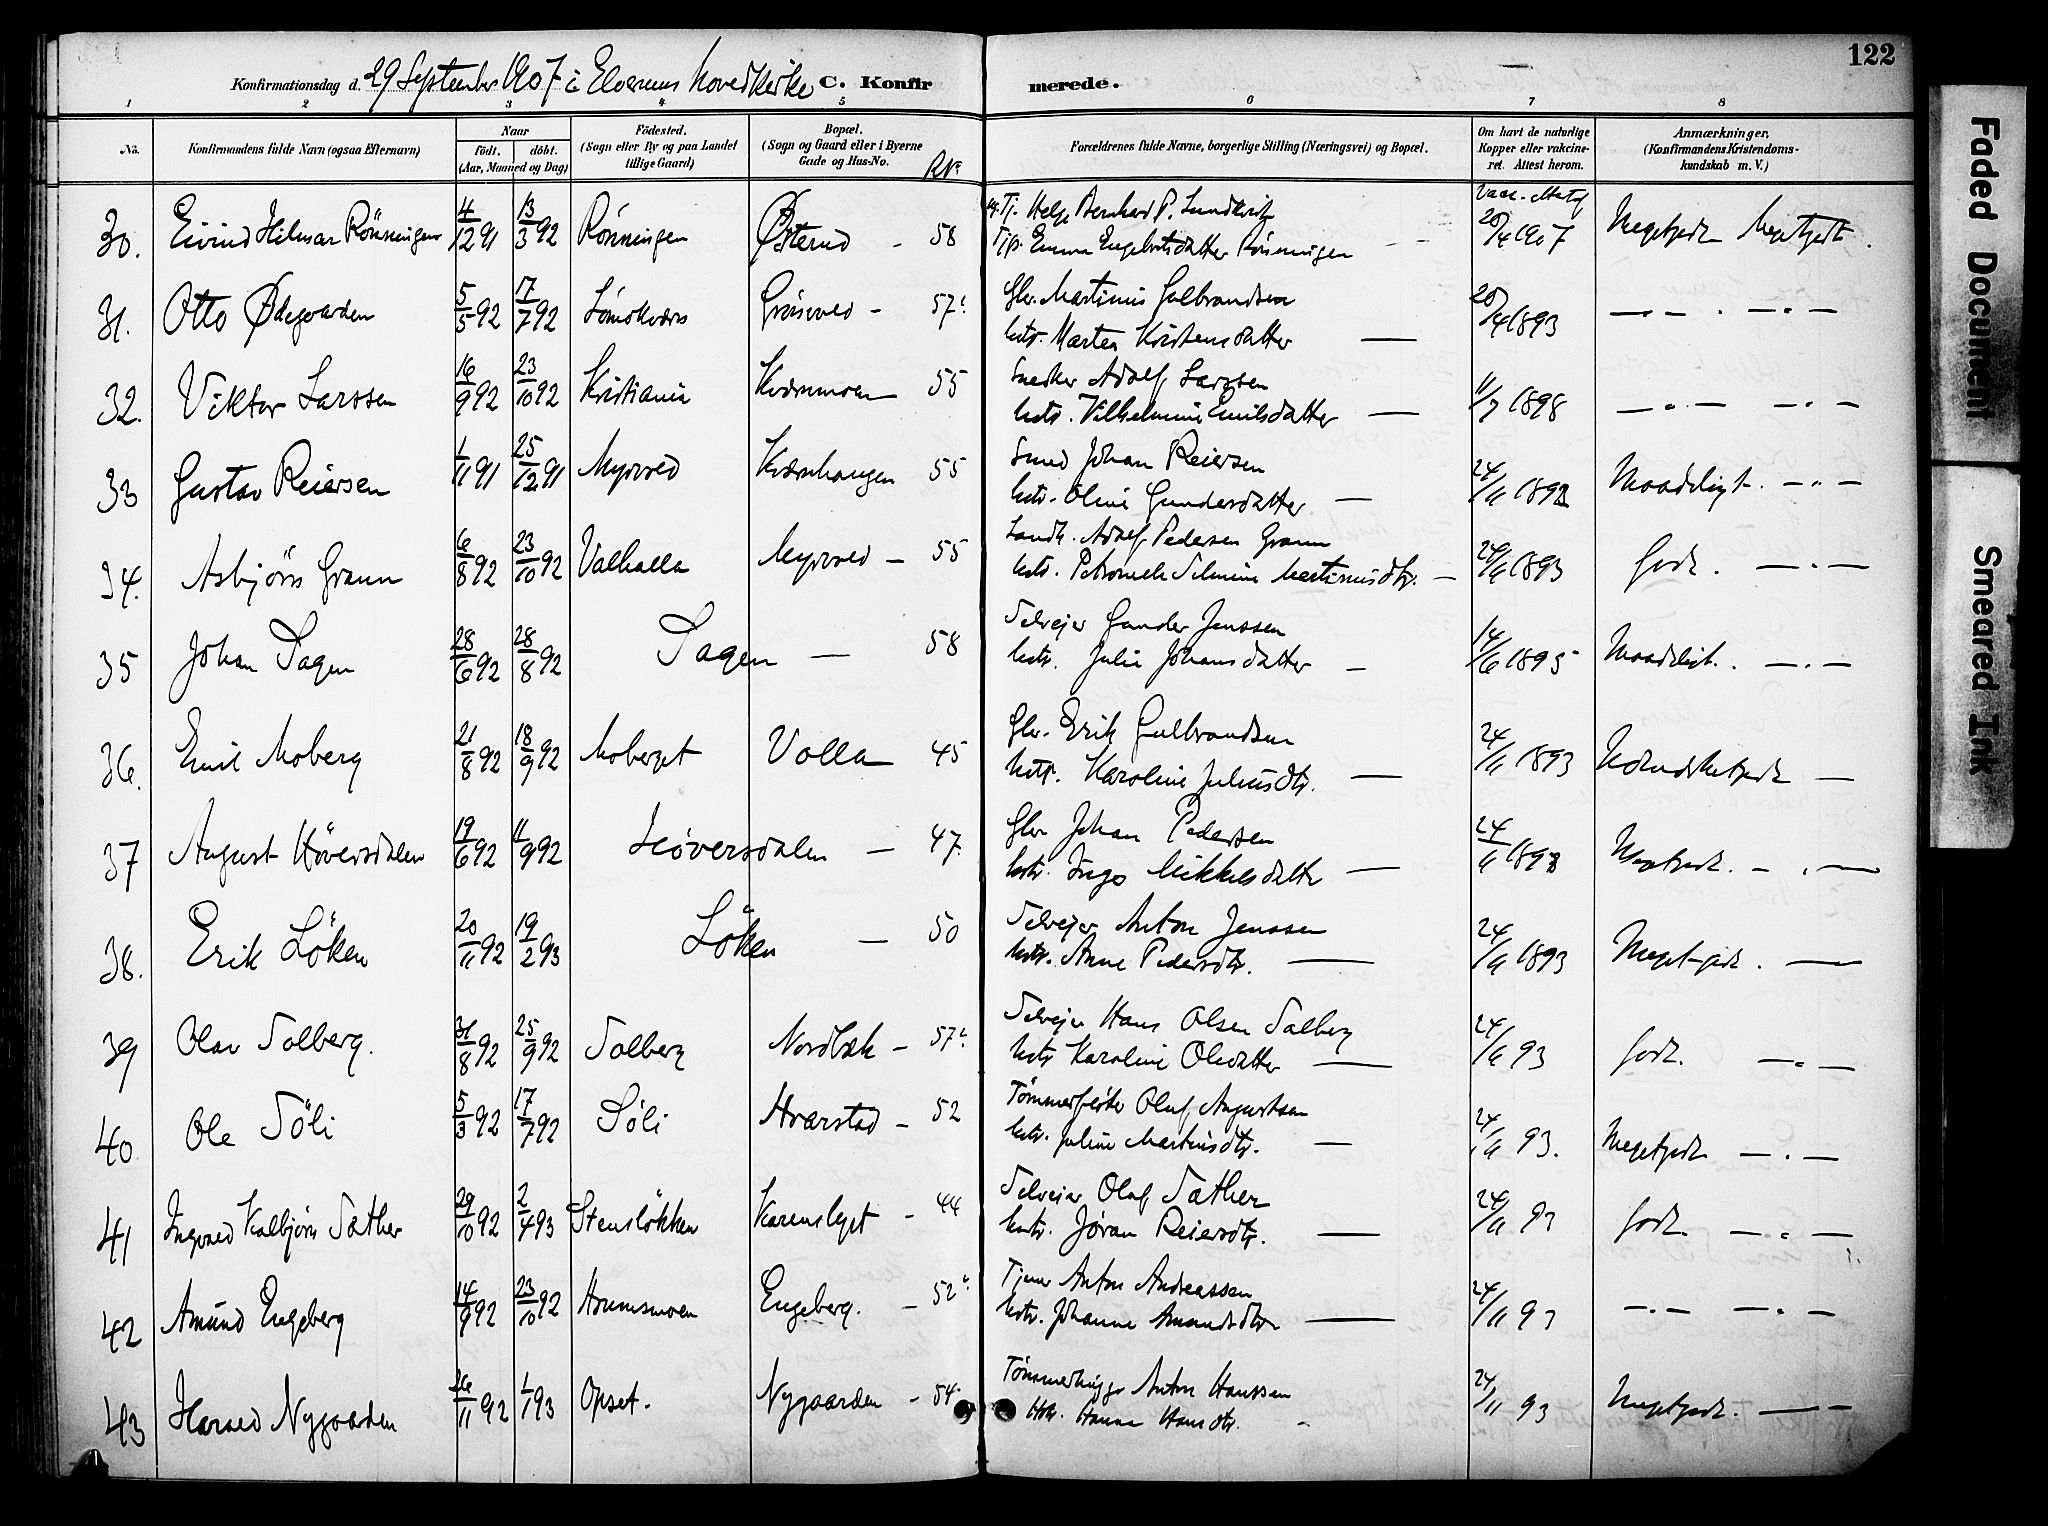 122
Konfirmationsdag d. 29 September 1907 i Elverums Hovedkirke C. Konfirmerede.
1 2 3 4 5 6 7 8
No. Konfirmandens fulde Navn (ogsaa Efternavn) Naar født, døbt. (Aar, Maaned og Dag) Fødested. (Sogn eller By og paa Landet tillige Gaard) Bopæl. (Sogn og Gaard eller i Byerne Gade og Hus-No. R.No. Forældrenes fulde Navne, borgerlige Stilling (Næringsvei) og Bopæl. Om havt de naturlige Kopper eller vaccineret. Attest herom. Anmærkninger. (Konfirmandens Kristendomskundskab m. V.)
30. Eivind Hilmar Rönningen 4/12 91 13/3 92 Rönningen Østerud - 58 Tj. Helge Bernhard P. Lundkvist
Emma Engebretsdatter Rönningen 20/4 1907 Megetgodt Megetgodt.
31. Otto Ødegaarden 5/5 92 17/7 92 Grönved - 57 Martinus Gulbrandsen
hstr. Marta Kristensdatter — 20/4 1893 — . — . — . —
32. Viktor Larssen 16/9 92 23/10 92 Kristiania Kvernmoen 55 Snedker Adolf Larssen
hstr. Vilhelmine Emilsdatter — 11/7 1898 — . — — . —
33 Gustav Reiersen 1/11 91 25/12 91 Myrvold Kværnhaugen 55 Smed Johan Reiersen
hstr. Oline Gundersdatter — 24/11 1892 Maadeligt. — . —
34. Asbjörn Grann 6/8 92 23/10 92 Valhalla Myrvold - 55 Landh. Adolf Pedersen Grann
hstr. Petronelle Selmine Martinusdtr. — 1893 Godt. — . —
35 Johan Sagen 28/6 92 28/8 92 Sagen — 58 Selveier Gunder Jenssen
hstr. Julie Johansdatter — 14/6 1895 Maadeligt. — . —
36. Emil Moberg 21/8 92 18/9 92 Moberget Volla 45 Erik Gulbrandsen
hstr. Karoline Juliusdtr. — 24/11 1893 Udmerketgodt —
37 August Höversdalen 19/6 92 11/9 92 Höversdalen — 47. Johan Pedersen
hstr. Inga Mikkelsdatter — 24/11 1893 Megetgodt. — . —
38. Erik Löken 20/11 92 19/2 93 Löken — 50 Selveier Anton Jenssen
hstr. Anne Pedersdtr. — 24/11 1893 Meget godt. —
39 Olav Solberg. 31/8 92 25/9 92 Solberg Nordbæk - 57 Selveier Hans Olsen Solberg
hstr Karoline Olsdatter — 24/11 93 Godt. — . —
40 Ole Söli 5/3 92 17/7 92 Söli Hvarstad - 52 Tömmerfløter Oluf Augustsen
hstr. Juline Martinusdtr. — 24/11 93. Megetgodt — . —
41 Ingvald Kolbjörn Sæther 29/10 92 2/4 93 Stenslökken Karenslyst - 44 Selveier Oluf Sæther
hstr. Jøran Reiersdtr. — 24/11 93 Godt. — . —
42 Amund Engeberg 14/9 92 23/10 92 Hummsmoen Engeberg. - 52 Tjener Anton Andreassen
hstr. Johanne Amundsdtr — 24/11 93 — . — — . —
43 Harald Nygaarden 26/11 92 1/1 93 Opset. Nygaarden - 54 Tömmerhugger Anton Hanssen
Hstr. Hanna Hansdtr. 24/11 93 Megetgodt. — —
Faded Document
Smeared Ink